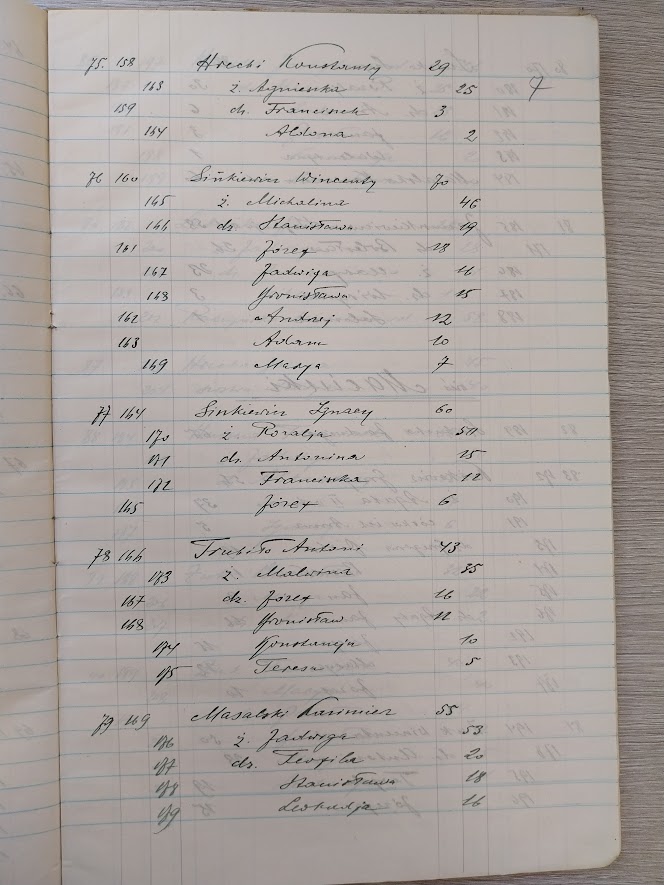 75. 158 Hrecki Konstanty 29
163 ż. Agnieszka 25 7
159 dz. Franciszek 3
164 Aldona 2
76 160 Sińkiewicz Wincenty 70
165 ż. Michalina 46
166 dz. Stanisława 19
161 Józef 18
167 Jadwiga 16
168 Bronisława 15
162 Andrzej 12
163 Adam 10
169 Marya 7
77 164 Sinkiewicz Ignacy 60
170 ż Rozalja 50
171 dz. Antonina 15
172 Franciszka 12
165 Józef 6
78 166 Trubiło Antoni 43
173 ż. Malwina 35
167 dz. Józef 16
168 Bronisław 12
174 Konstancja 10
175 Teresa 5
79 169 Masalski Kazimierz 55
176 ż. Jadwiga 53
177 dz. Teofila 20
178 Stanisława 18
179 Leokadja 16